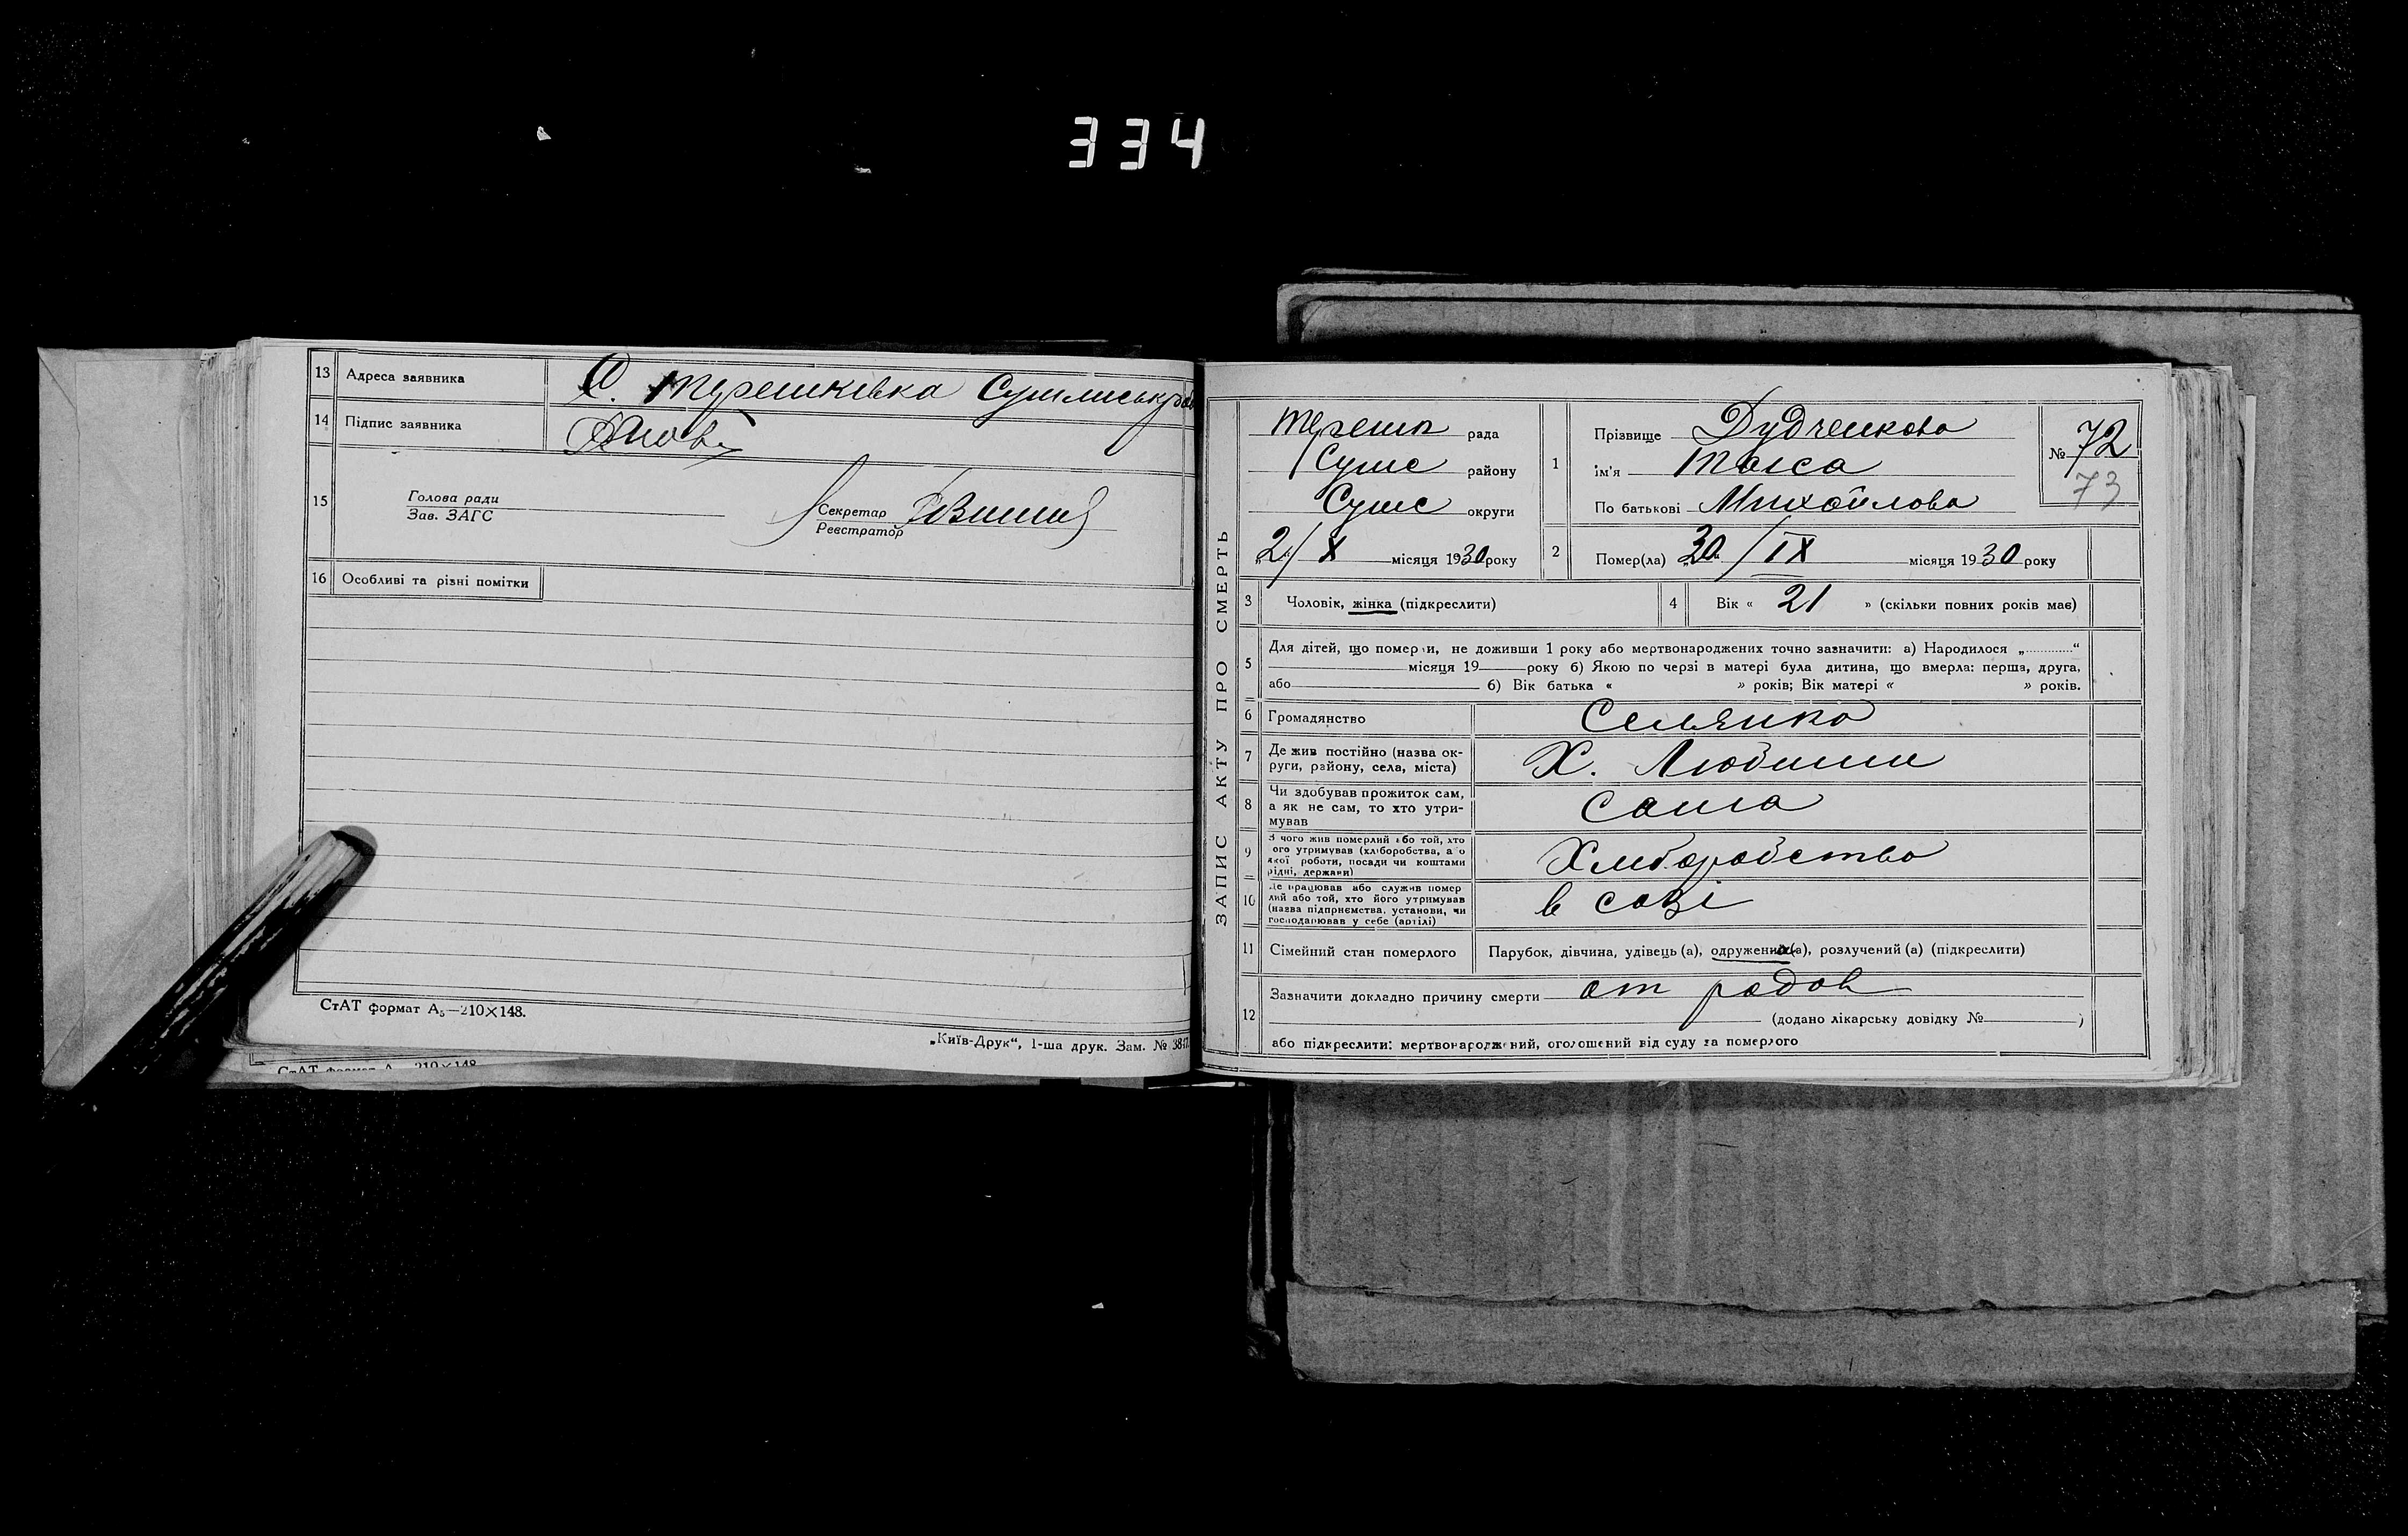 334
13 Адреса заявника С. Терешківка Сумський рай
14 Підпис заявника
15 Голова ради
Зав. ЗАГС
Секретар
Реєстратор
16 Особливі та різні помітки
СтАТ формат А₅—210×148.
„Київ-Друк“, 1-ша друк. Зам. № 38
СтАТ формат А 210×148
ЗАПИС АКТУ ПРО СМЕРТЬ
Терешк рада
Сумс району
Сумс округи
„2“/X місяця 1930 року
1 Прізвище Дудченкова
ім'я Таїса
По батькові Михайлова
№ 72
73
2 Помер(ла) „30“/IX місяця 1930 року
3 Чоловік, жінка (підкреслити)
4 Вік « 21 » (скільки повних років має)
5 Для дітей, що померли, не доживши 1 року або мертвонароджених точно зазначити: а) Народилося „............“
місяця 19 року б) Якою по черзі в матері була дитина, що вмерла: перша, друга,
або б) Вік батька « » років; Вік матері « » років.
6 Громадянство Селянка
7 Де жив постійно (назва ок-
руги, району, села, міста) Х.
8 Чи здобував прожиток сам,
а як не сам, то хто утри-
мував Сама
9 З чого жив померлий або той, хто
його утримував (хліборобства, або
якої роботи, посади чи коштами
рідні, держави) Хліборобство
10 Де працював або служив помер
лий або той, хто його утримував
(назва підприємства, установи, чи
господарював у себе (артілі) в созі
11 Сімейний стан померлого Парубок, дівчина, удівець (а), одружений(а), розлучений (а) (підкреслити)
12 Зазначити докладно причину смерти от родов
(додано лікарську довідку № )
або підкреслити: мертвонароджений, оголошений від суду за померлого